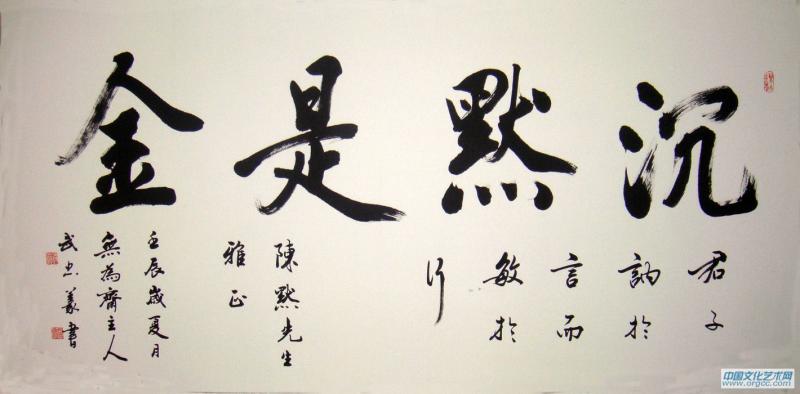 沉默是金
君子
訥於
言而
敏於
行
陳默先生
雅正
壬辰歲夏月
無為齋主人
武忠義書
中国文化艺术网
www.orgcc.com